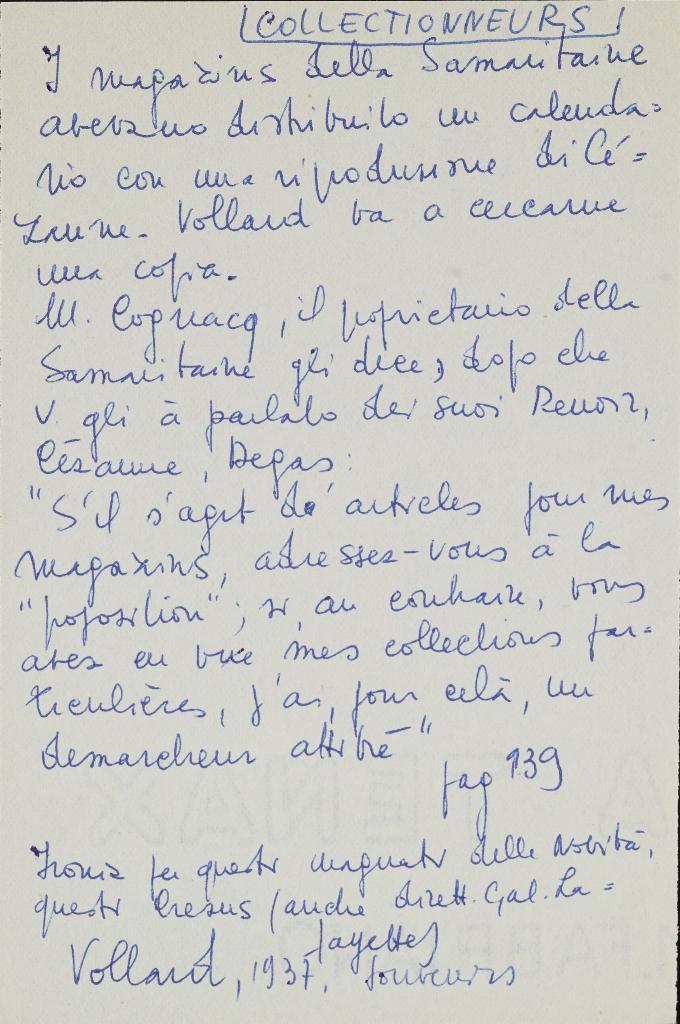 COLLECTIONNEURS
I magazins della Samaritaine
avevano distribuito un calenda=
rio con una riproduzione di Cé=
zanne. Vollard va a cercarne
una copia.
M. Cognacq, il proprietario della
Samaritaine gli dice, dopo che
V. gli à parlato dei suoi Renoir,
Cézanne, Degas:
"S'il s'agit d'articles pour mes
magazins, adressez-vous à la
"proposition"; si, au contraire, vous
avez en vue mes collections par=
ticulières, j'ai, pour celà, un
demarcheur attitré"
pag 139
Ironia per questi magnati delle novità,
questi Cresus (anche dirett. Gal. La=
fayette)
Vollard, 1937, Souvenirs